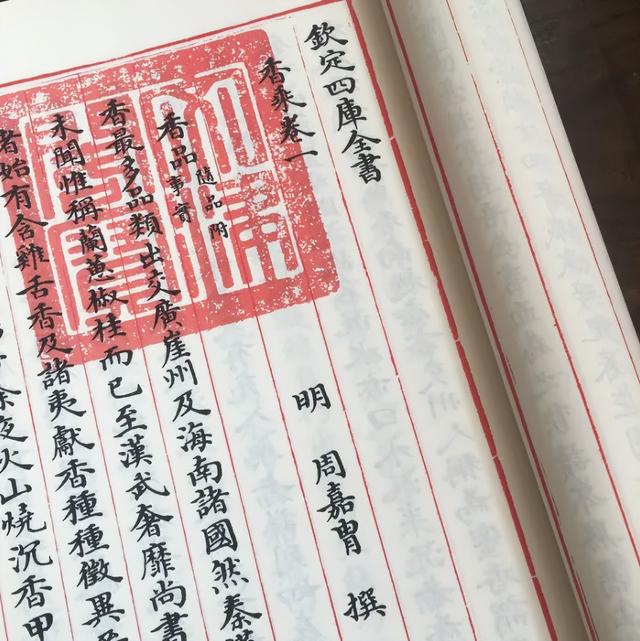 欽定四庫全書
香乘卷一
明 周嘉胄 撰
香品 隨品附
事實
香最多品類出交廣崖州及海南諸國然秦
未聞惟稱蘭蕙椒桂而已至漢武奢靡尚書
者始有含雞舌香及諸夷獻香種種徵異
夜火山燒沉香甲